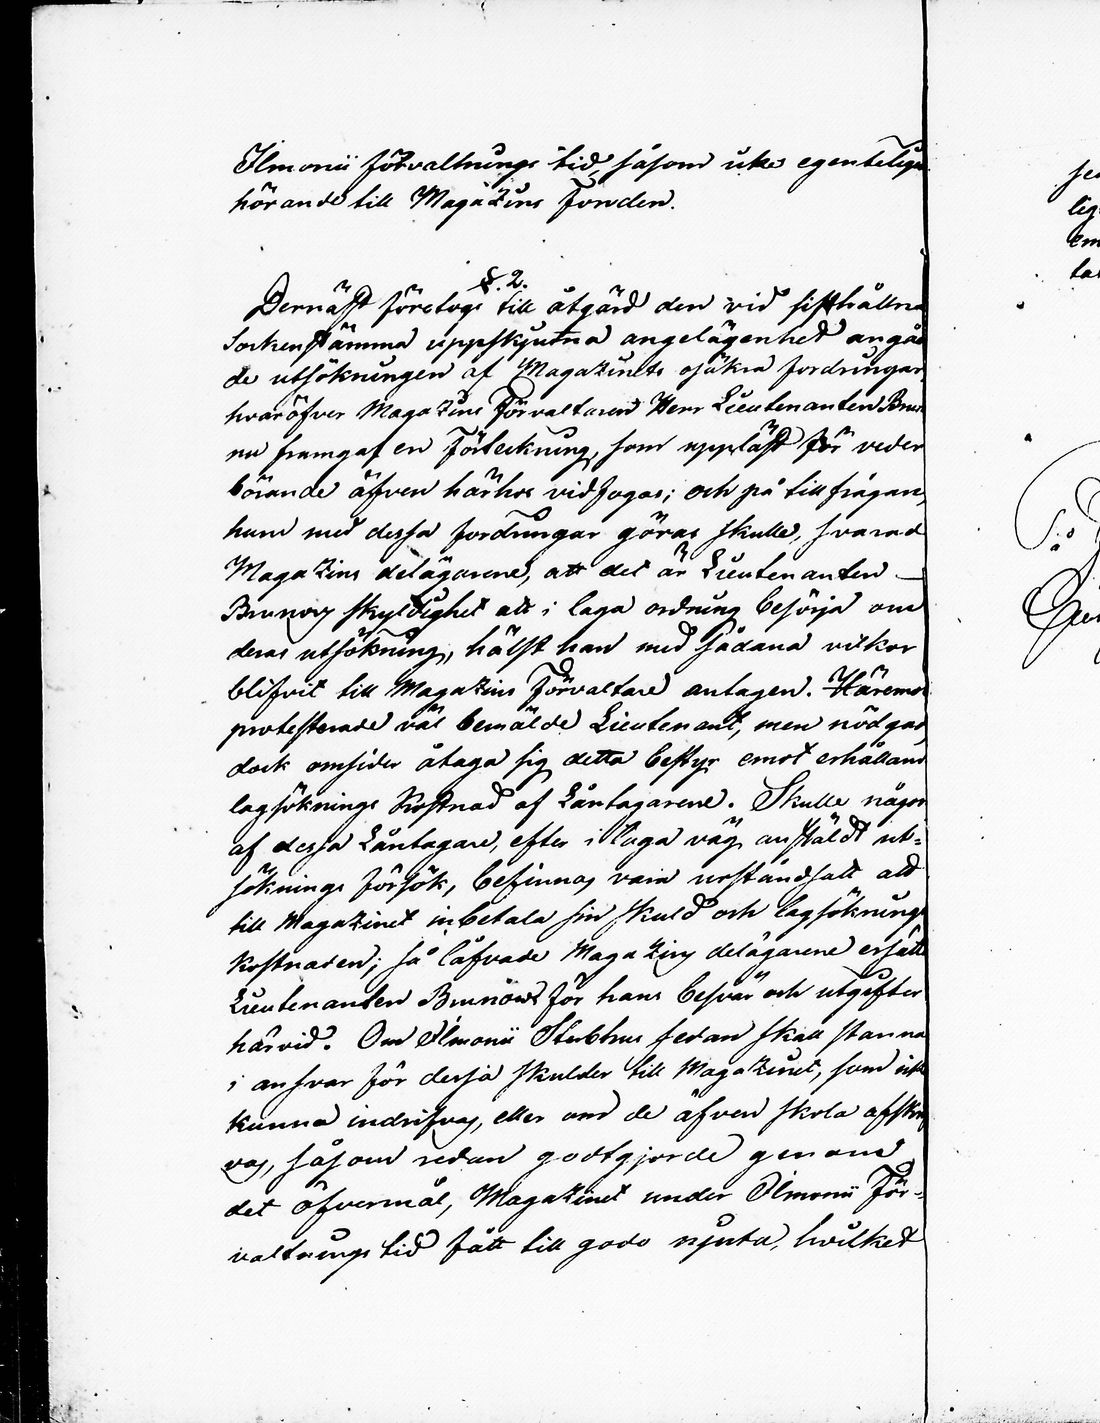 Ilmonii förvaltnings tid, såsom icke egenteligen
hörande till Magazins Fonden.
§. 2.
Dernäst företogs till åtgärd den vid sisthållna
Sockenstämma uppskjutna angelägenhet angåen
de utsökningen af Magazinets osäkra fordringar,
hvaröfver Magazins Förvaltaren Herr Lieutenanten Brun
nu framgaf en Förteckning, som uppläst för veder
börande äfven härhos vidfogas; och på tillfrågan,
huru med dessa fordringar göras skulle, svarad
Magazins delägarene, att det är Lieutenanten
Brunows skyldighet att i laga ordning besörja om
deras utsökning, hälst han med sådana vilkor
blifvit till Magazins Förvaltare antagen. Häremot
protesterade väl bemälde Lieutenant, men nödgas
dock omsider åtaga sig detta bestyr emot erhålland
lagsöknings kostnad af Låntagarene. Skulle någon
af dessa Låntagare, efter i laga väg anstäldt ut-
söknings försök, befinnas vara urståndsatt att
till Magazinet inbetala sin skuld och lagsöknings
kostnaden; så låfvade Magazins delägarene ersätta
Lieutenanten Brunow för hans besvär och utgifter
härvid. Om Ilmonii Sterbhus sedan skall stanna
i ansvar för dessa skulder till Magazinet, som icke
kunna indrifvas, eller om de äfven skola afskrif
vas, såsom redan godtgjorde genom
det öfvermål, Magazinet under Ilmonii För-
valtnings tid fått till godo njuta, hvilket